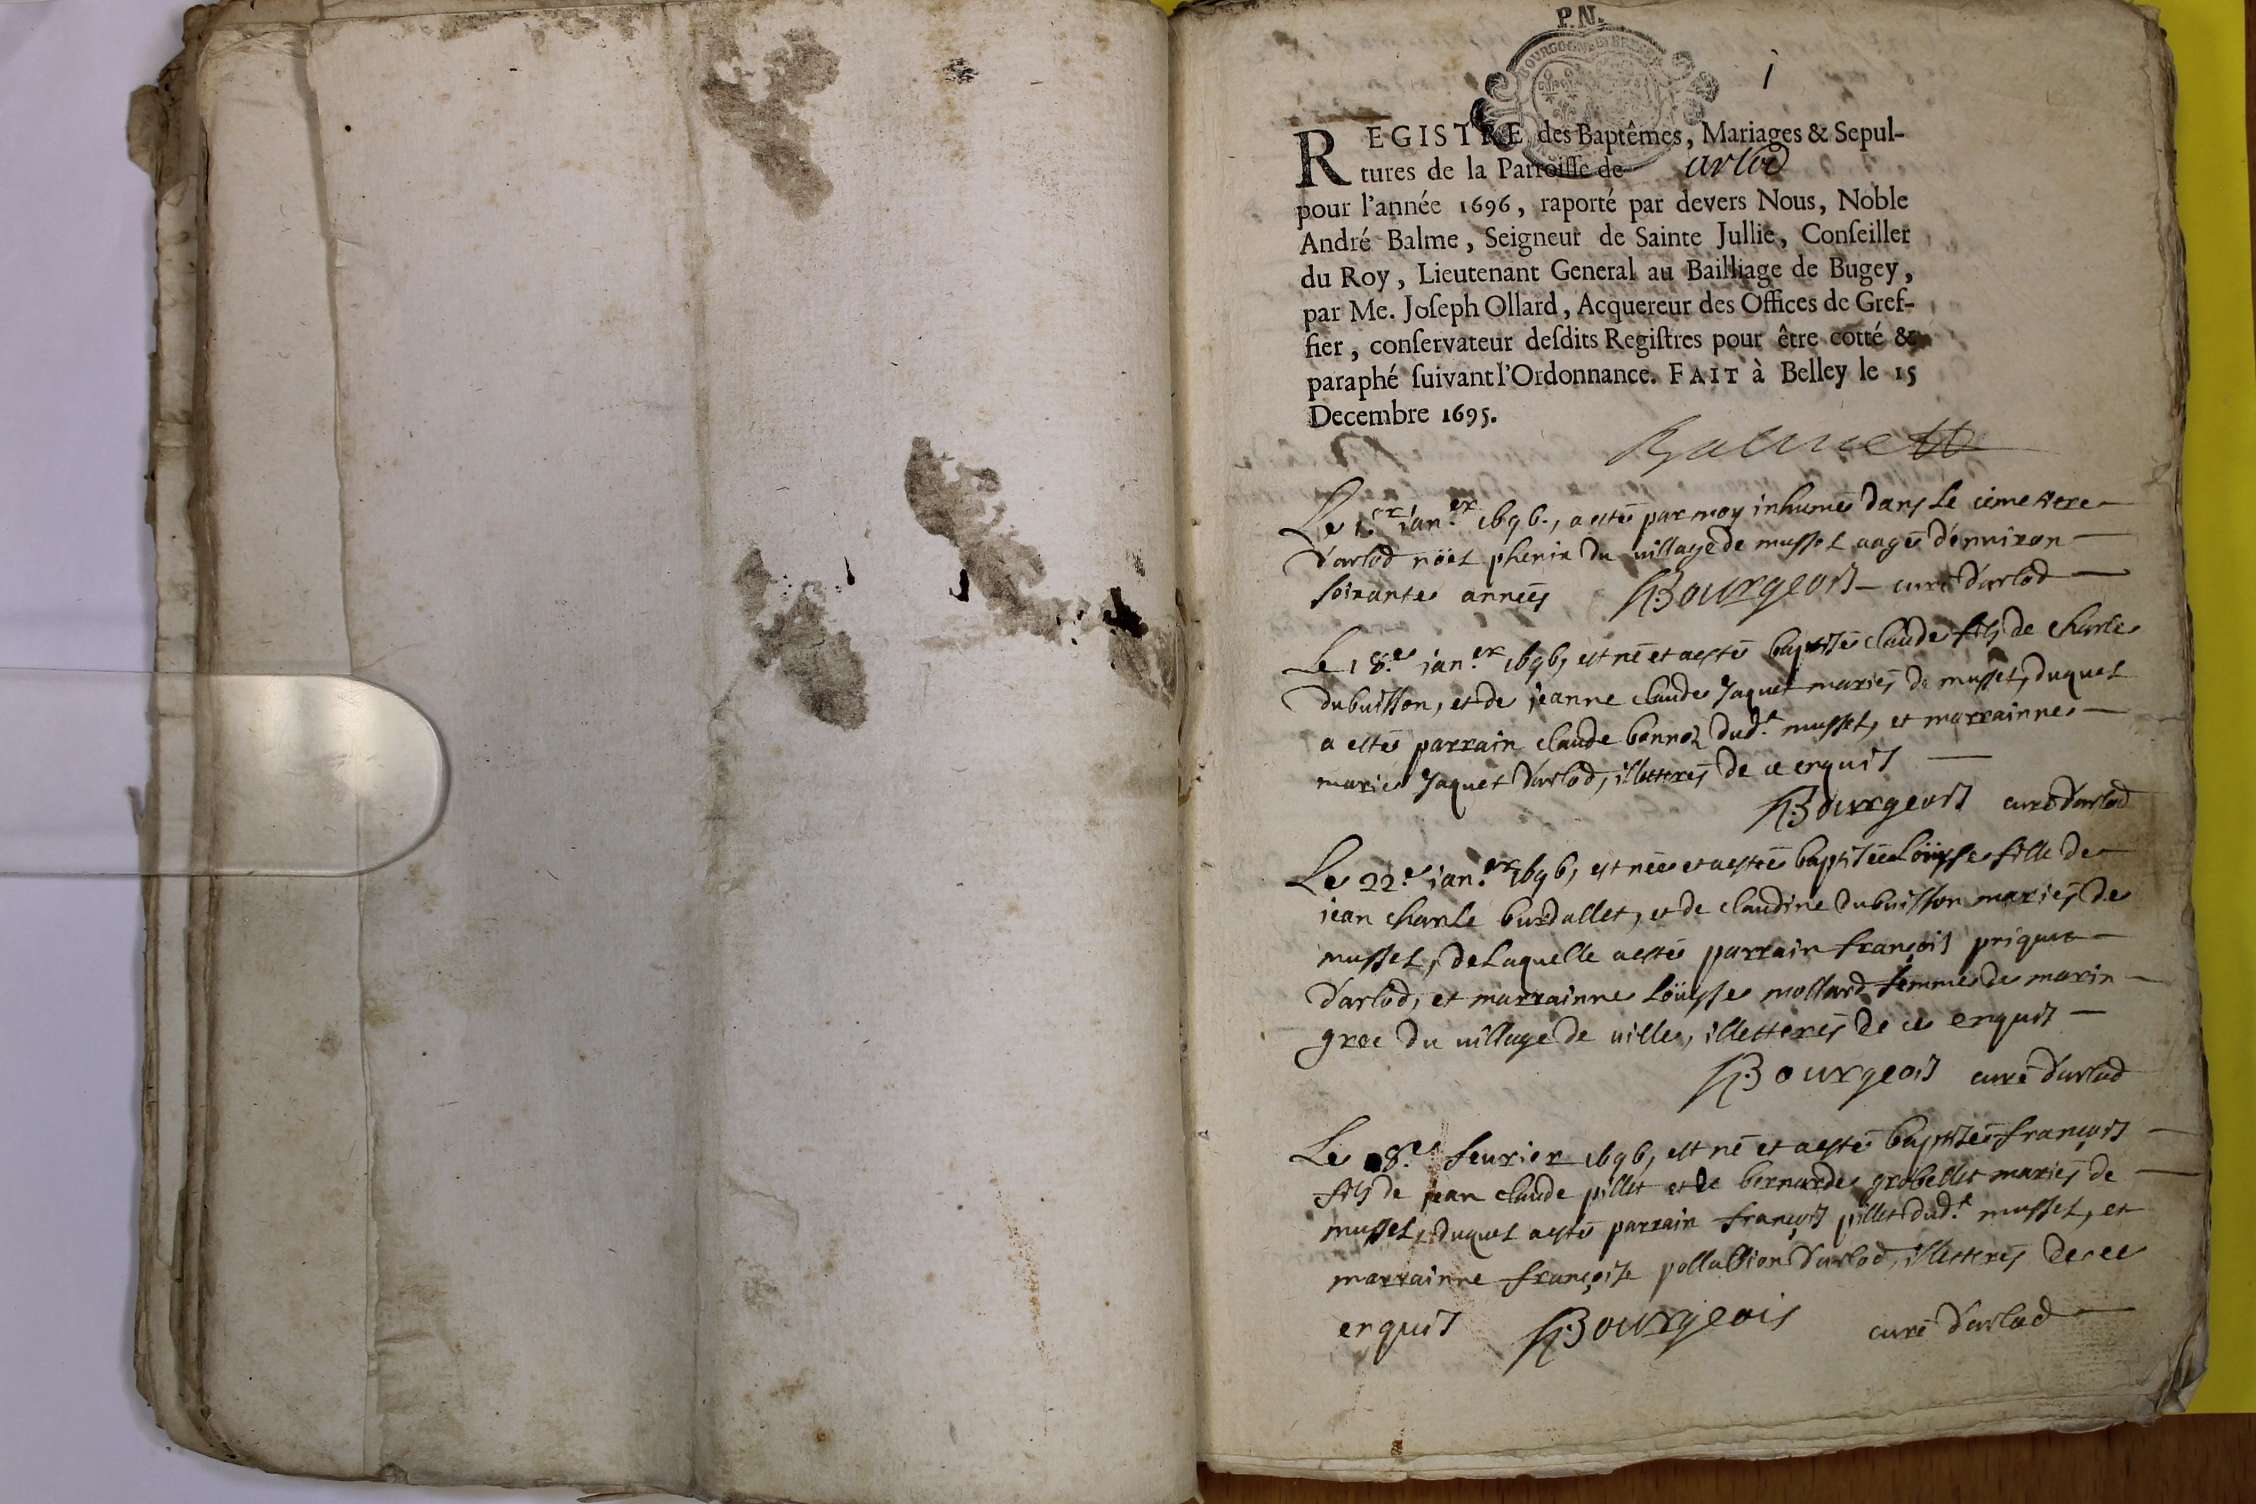 P.N.
BOURGOGNE ET BRESSE
1
REGISTRE des Baptêmes, Mariages & Sepul-
tures de la Parroisse de arlod
pour l'année 1696, raporté par devers Nous, Noble
André Balme, Seigneur de Sainte Jullie, Conseiller
du Roy, Lieutenant General au Bailliage de Bugey,
par Me. Joseph Ollard, Acquereur des Offices de Gref-
fier, conservateur desdits Registres pour être cotté &
paraphé suivant l'Ordonnance. FAIT à Belley le 15
Decembre 1695.
Balme
Le 1.er ian.er 1696., a esté par moy inhumé dans le cimettere
d'arlod nöel phenix du uillage de mussel aagé d'enuiron
soixante années HBourgeois curé d'arlod
Le 18.e ian.er 1696, est né et a esté baptisé claude fils de charle
dubuisson, et de jeanne claude Jaquet mariés de mussel, duquel
a esté parrain claude bonnoz dud.t mussel, et marrainne
marie Jaquet d'arlod, illetterés de ce enquis
HBourgeois curé d'arlod
Le 22.e ian.er 1696, est née et a esté baptisée Loüysse fille de
jean charle burdallet, et de claudine dubuisson mariés de
mussel, de laquelle a esté parrain françois priquet
d'arlod, et marrainne Loüysse mollard femme de marin
gree du uillage de uille, illetterés de ce enquis
HBourgeois curé d'arlod
Le 8.e feurier 1696, est né et a esté baptisé françois
fils de jean claude pillet et de bernarde grobellet mariés de
mussel, duquel a esté parrain françois pillet dud.t mussel, et
marrainne françoise pollallion d'arlod, illetterés de ce
enquis HBourgeois curé d'arlod